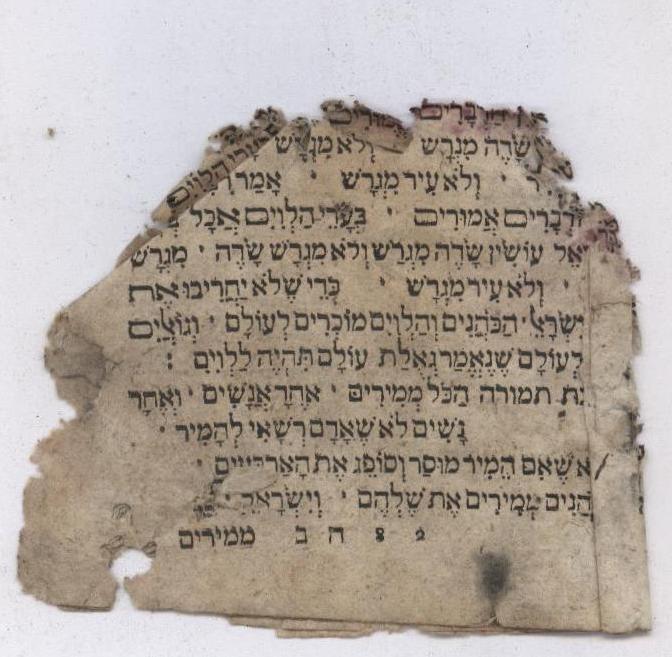 הַדְּבָרִים אֲמוּרִים
שָׂדֶה מִגְרָשׁ וְלֹא מִגְרָשׁ עָרֵי הַלְוִיִּם
· וְלֹא עִיר מִגְרָשׁ · אָמַר
דְבָרִים אֲמוּרִים · בְּעָרֵי הַלְוִיִּם אֲבָל
אֵל עוֹשִׂין שָׂדֶה מִגְרָשׁ וְלֹא מִגְרָשׁ שָׂדֶה · מִגְרָשׁ
· וְלֹא עִיר מִגְרָשׁ · כְּדֵי שֶׁלֹּא יַחֲרִיבוּ אֶת
יִשְׂרָאֵל · הַכֹּהֲנִים וְהַלְוִיִּם מוֹכְרִים לְעוֹלָם · וְגוֹאֲלִים
לְעוֹלָם שֶׁנֶּאֱמַר גְּאֻלַּת עוֹלָם תִּהְיֶה לַלְוִיִּם :
כת תמורה הַכֹּל מְמִירִים · אֶחָד אֲנָשִׁים · וְאֶחָד
נָשִׁים לֹא שֶׁאָדָם רַשַּׁאי לְהָמִיר ·
א שֶׁאִם הֵמִיר מוּמָר וְסוֹפֵג אֶת הָאַרְבָּעִים ·
הֲנִים מְמִירִים אֶת שֶׁלָּהֶם · וְיִשְׂרָאֵל ·
ה ב ממירים